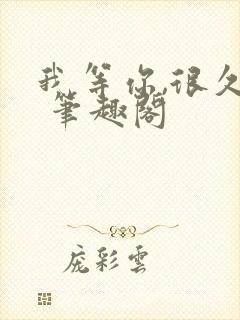 我等你,很久
筆趣閣
庞彩雲